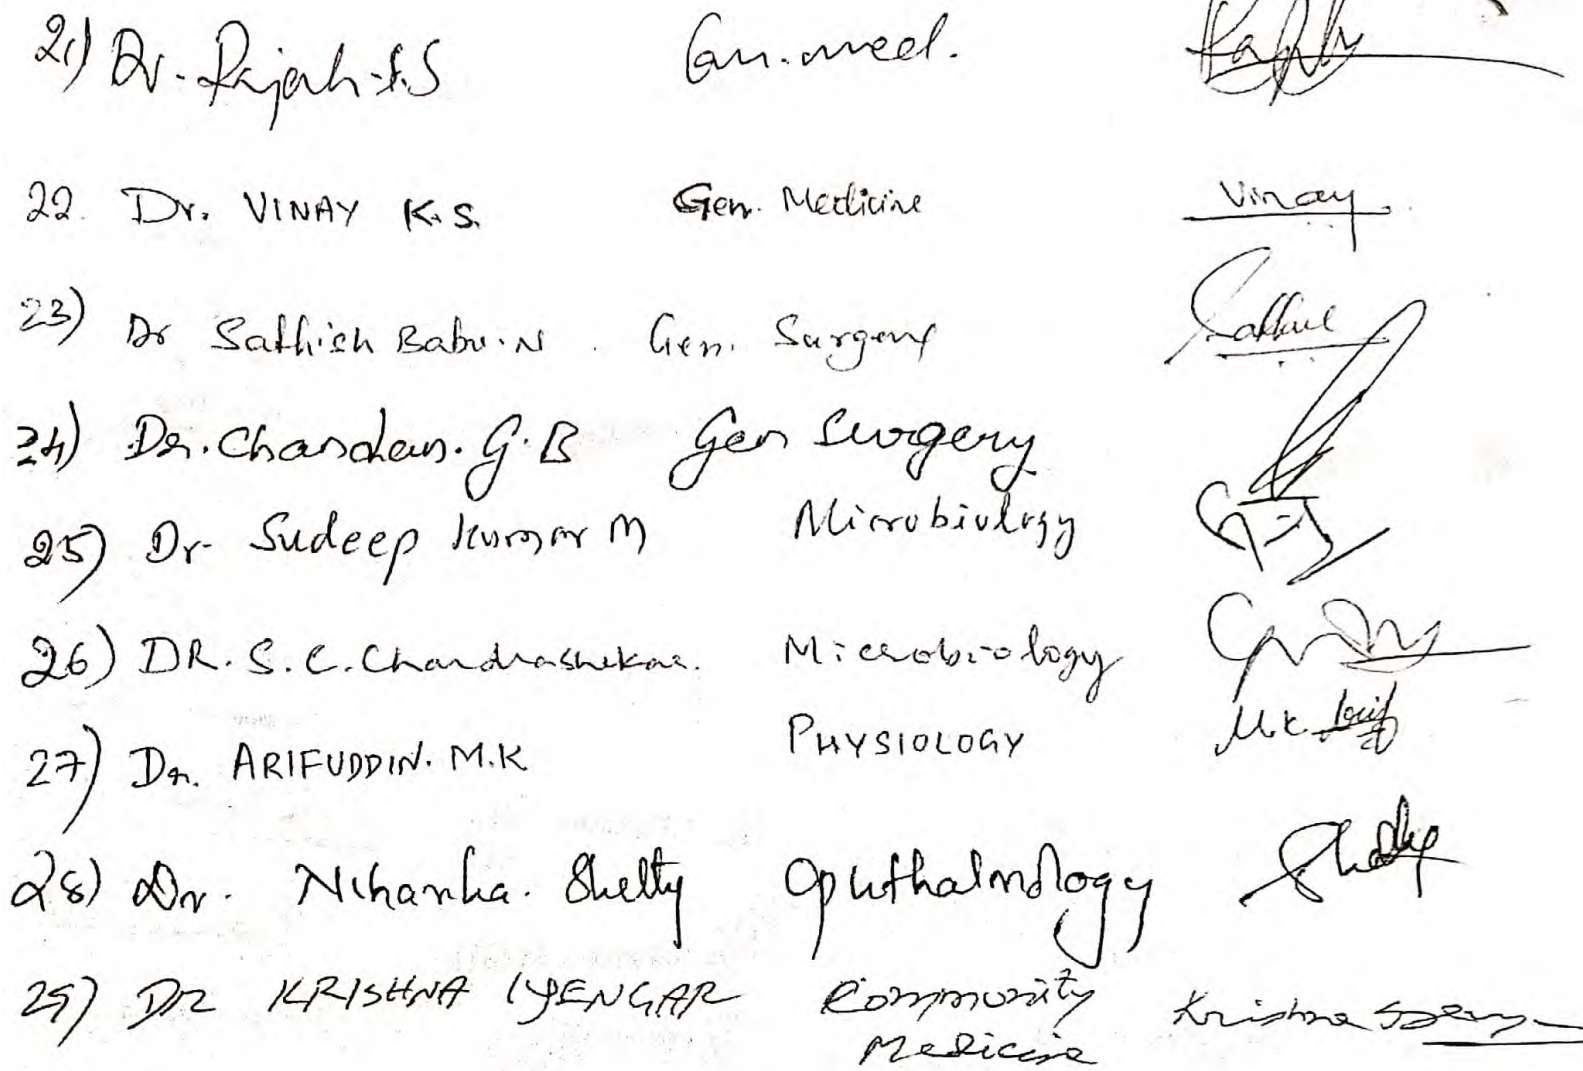 21) Dr. Rajesh S.S Gen. med.
22. Dr. VINAY K.S. Gen. Medicine Vinay
23) Dr Sathish Babu.N. Gen. Surgery
24) Dr. Chandan. G.B Gen Surgery
25) Dr. Sudeep Kumar M Microbiology
26) DR. S.C. Chandrashekar. Microbiology
27) Dr. ARIFUDDIN. M.K PHYSIOLOGY M.K. Arif
28) Dr. Niharika. Shetty Ophthalmology Shetty
29) DR KRISHNA IYENGAR Community Medicine Krishna Iyengar